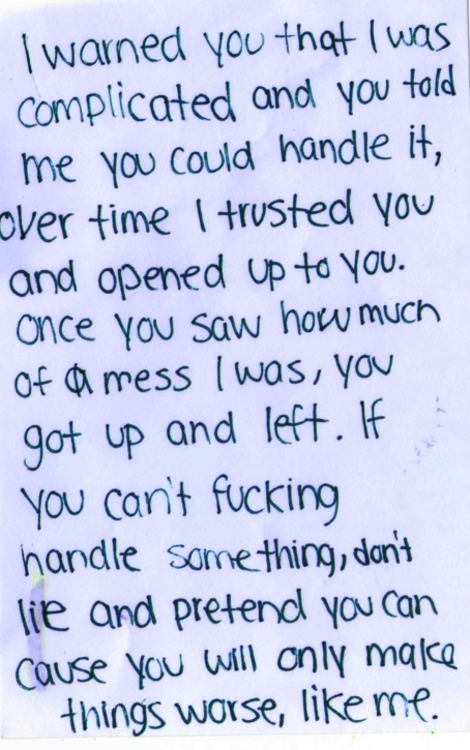 I warned you that I was
complicated and you told
me you could handle it,
over time I trusted you
and opened up to you.
Once you saw how much
of a mess I was, you
got up and left. If
you can't fucking
handle something, don't
lie and pretend you can
cause you will only make
things worse, like me.